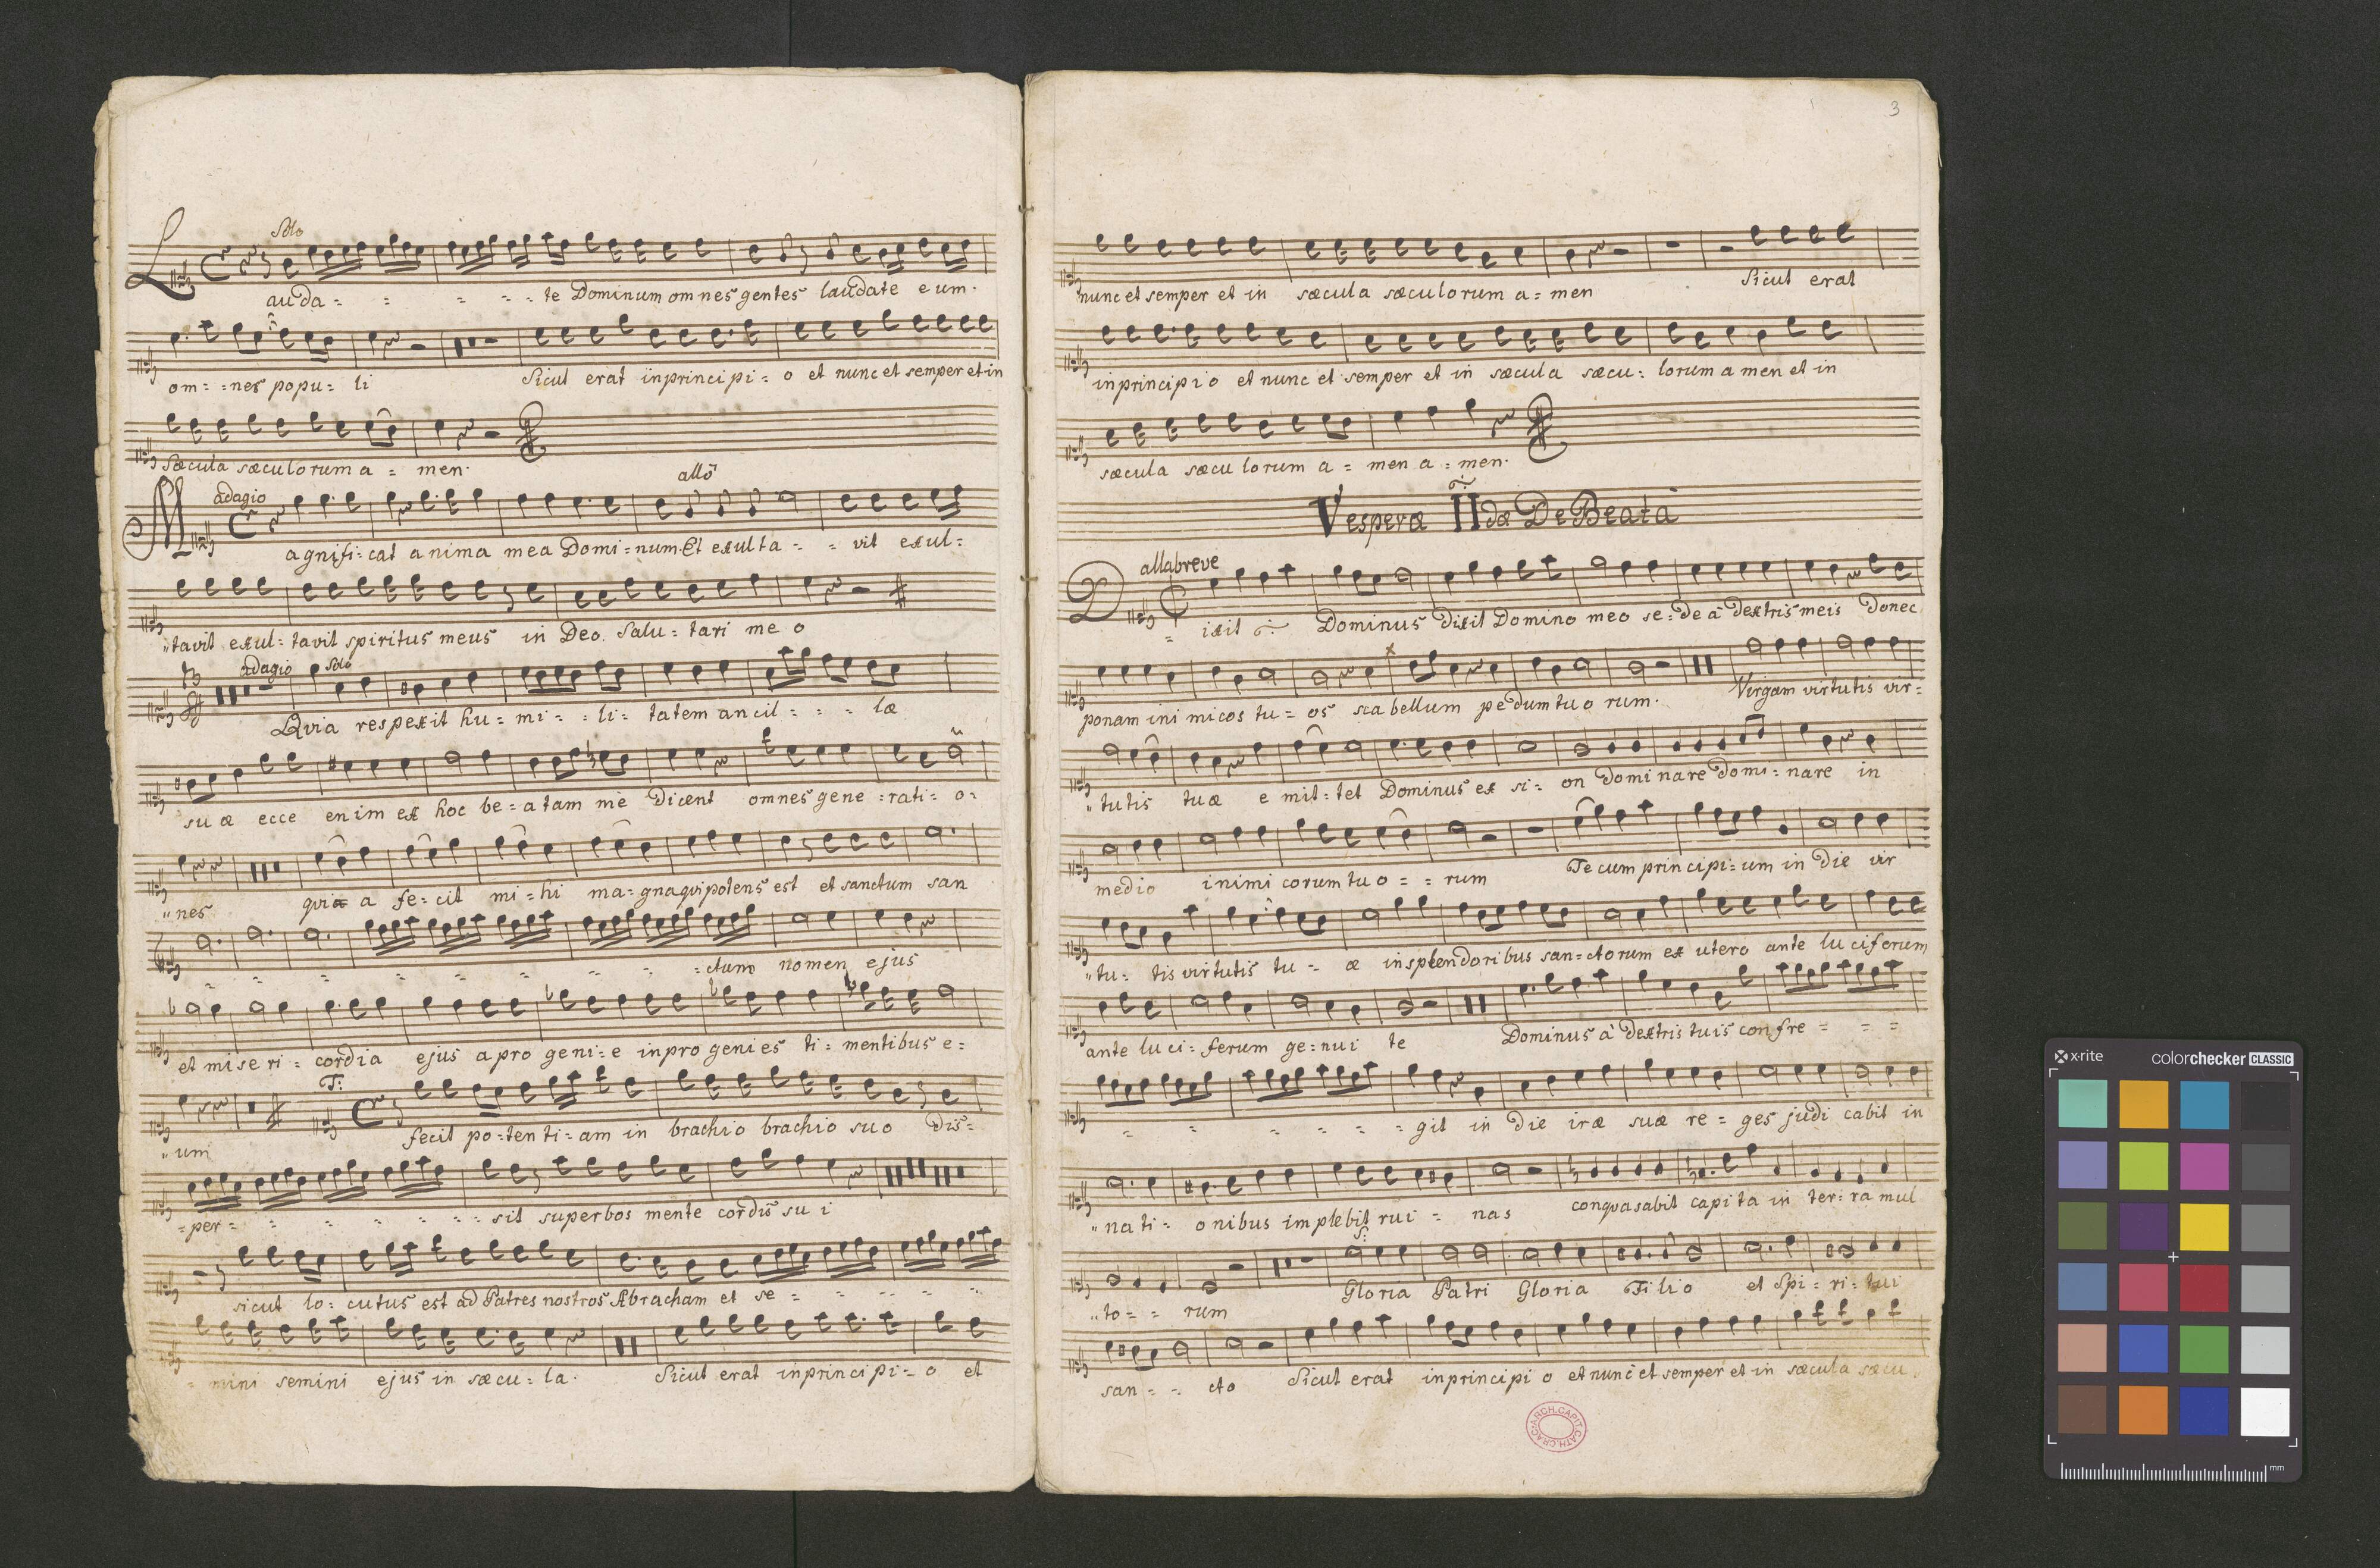 Solo
Lauda - - - - - te Dominum omnes gentes laudate eum.
om - - nes popu - li Sicut erat in principi - o et nunc et semper et in
Sæcula sæculorum a - men.
adagio allo
Magnifi - cat anima mea Domi - num. Et exulta - - vit exul -
tavit exul - tavit spiritus meus in Deo. Salu - tari meo
adagio solo
Qvia respexit hu - mi - - li - tatem ancil - - - læ
suæ ecce enim ex hoc be - atam me dicent omnes gene - rati - o -
nes qvia a fe - cit mi - hi ma - gna qvi potens est et sanctum san
- - - - - - - - - ctum nomen ejus
et miseri - cordia ejus a pro geni - e in pro genies ti - mentibus e -
um T: fecit po - tenti - am in brachio brachio suo dis -
per - - - - - - sit superbos mente cordis sui
sicut lo - cutus est ad Patres nostros Abracham et se - - - - -
mini semini ejus in sæcu - la. Sicut erat in principi - o et
3
nunc et semper et in sæcula sæculorum a - men Sicut erat
in principio et nunc et semper et in sæcula sæcu - lorum amen et in
sæcula sæculorum a - men a - men.
Vesperæ IIdæ De Beata
allabreve
Dixit Dominus dixit Domino meo se - de à dextris meis donec
ponam inimicos tu - os scabellum pedum tuorum. Virgam virtutis vir -
tutis tuæ e mit - tet Dominus ex si - on dominare domi - nare in
medio inimicorum tuo - - rum Tecum principi - um in die vir
tu - tis virtutis tu - æ in splendoribus san - ctorum ex utero ante luciferum
ante luci - ferum ge - nui te Dominus à dextris tuis confre - - -
- - - - - - git in die iræ suæ re - ges judicabit in
nati - onibus implebit rui - nas conqvasabit capita in ter - ra mul
S:
to - - rum Gloria Patri Gloria Filio et Spi - ri - tui
san - - cto Sicut erat in principio et nunc et semper et in sæcula sæcu
ARCH. CAPIT. CATH. CRAC.
x-rite colorchecker CLASSIC
mm